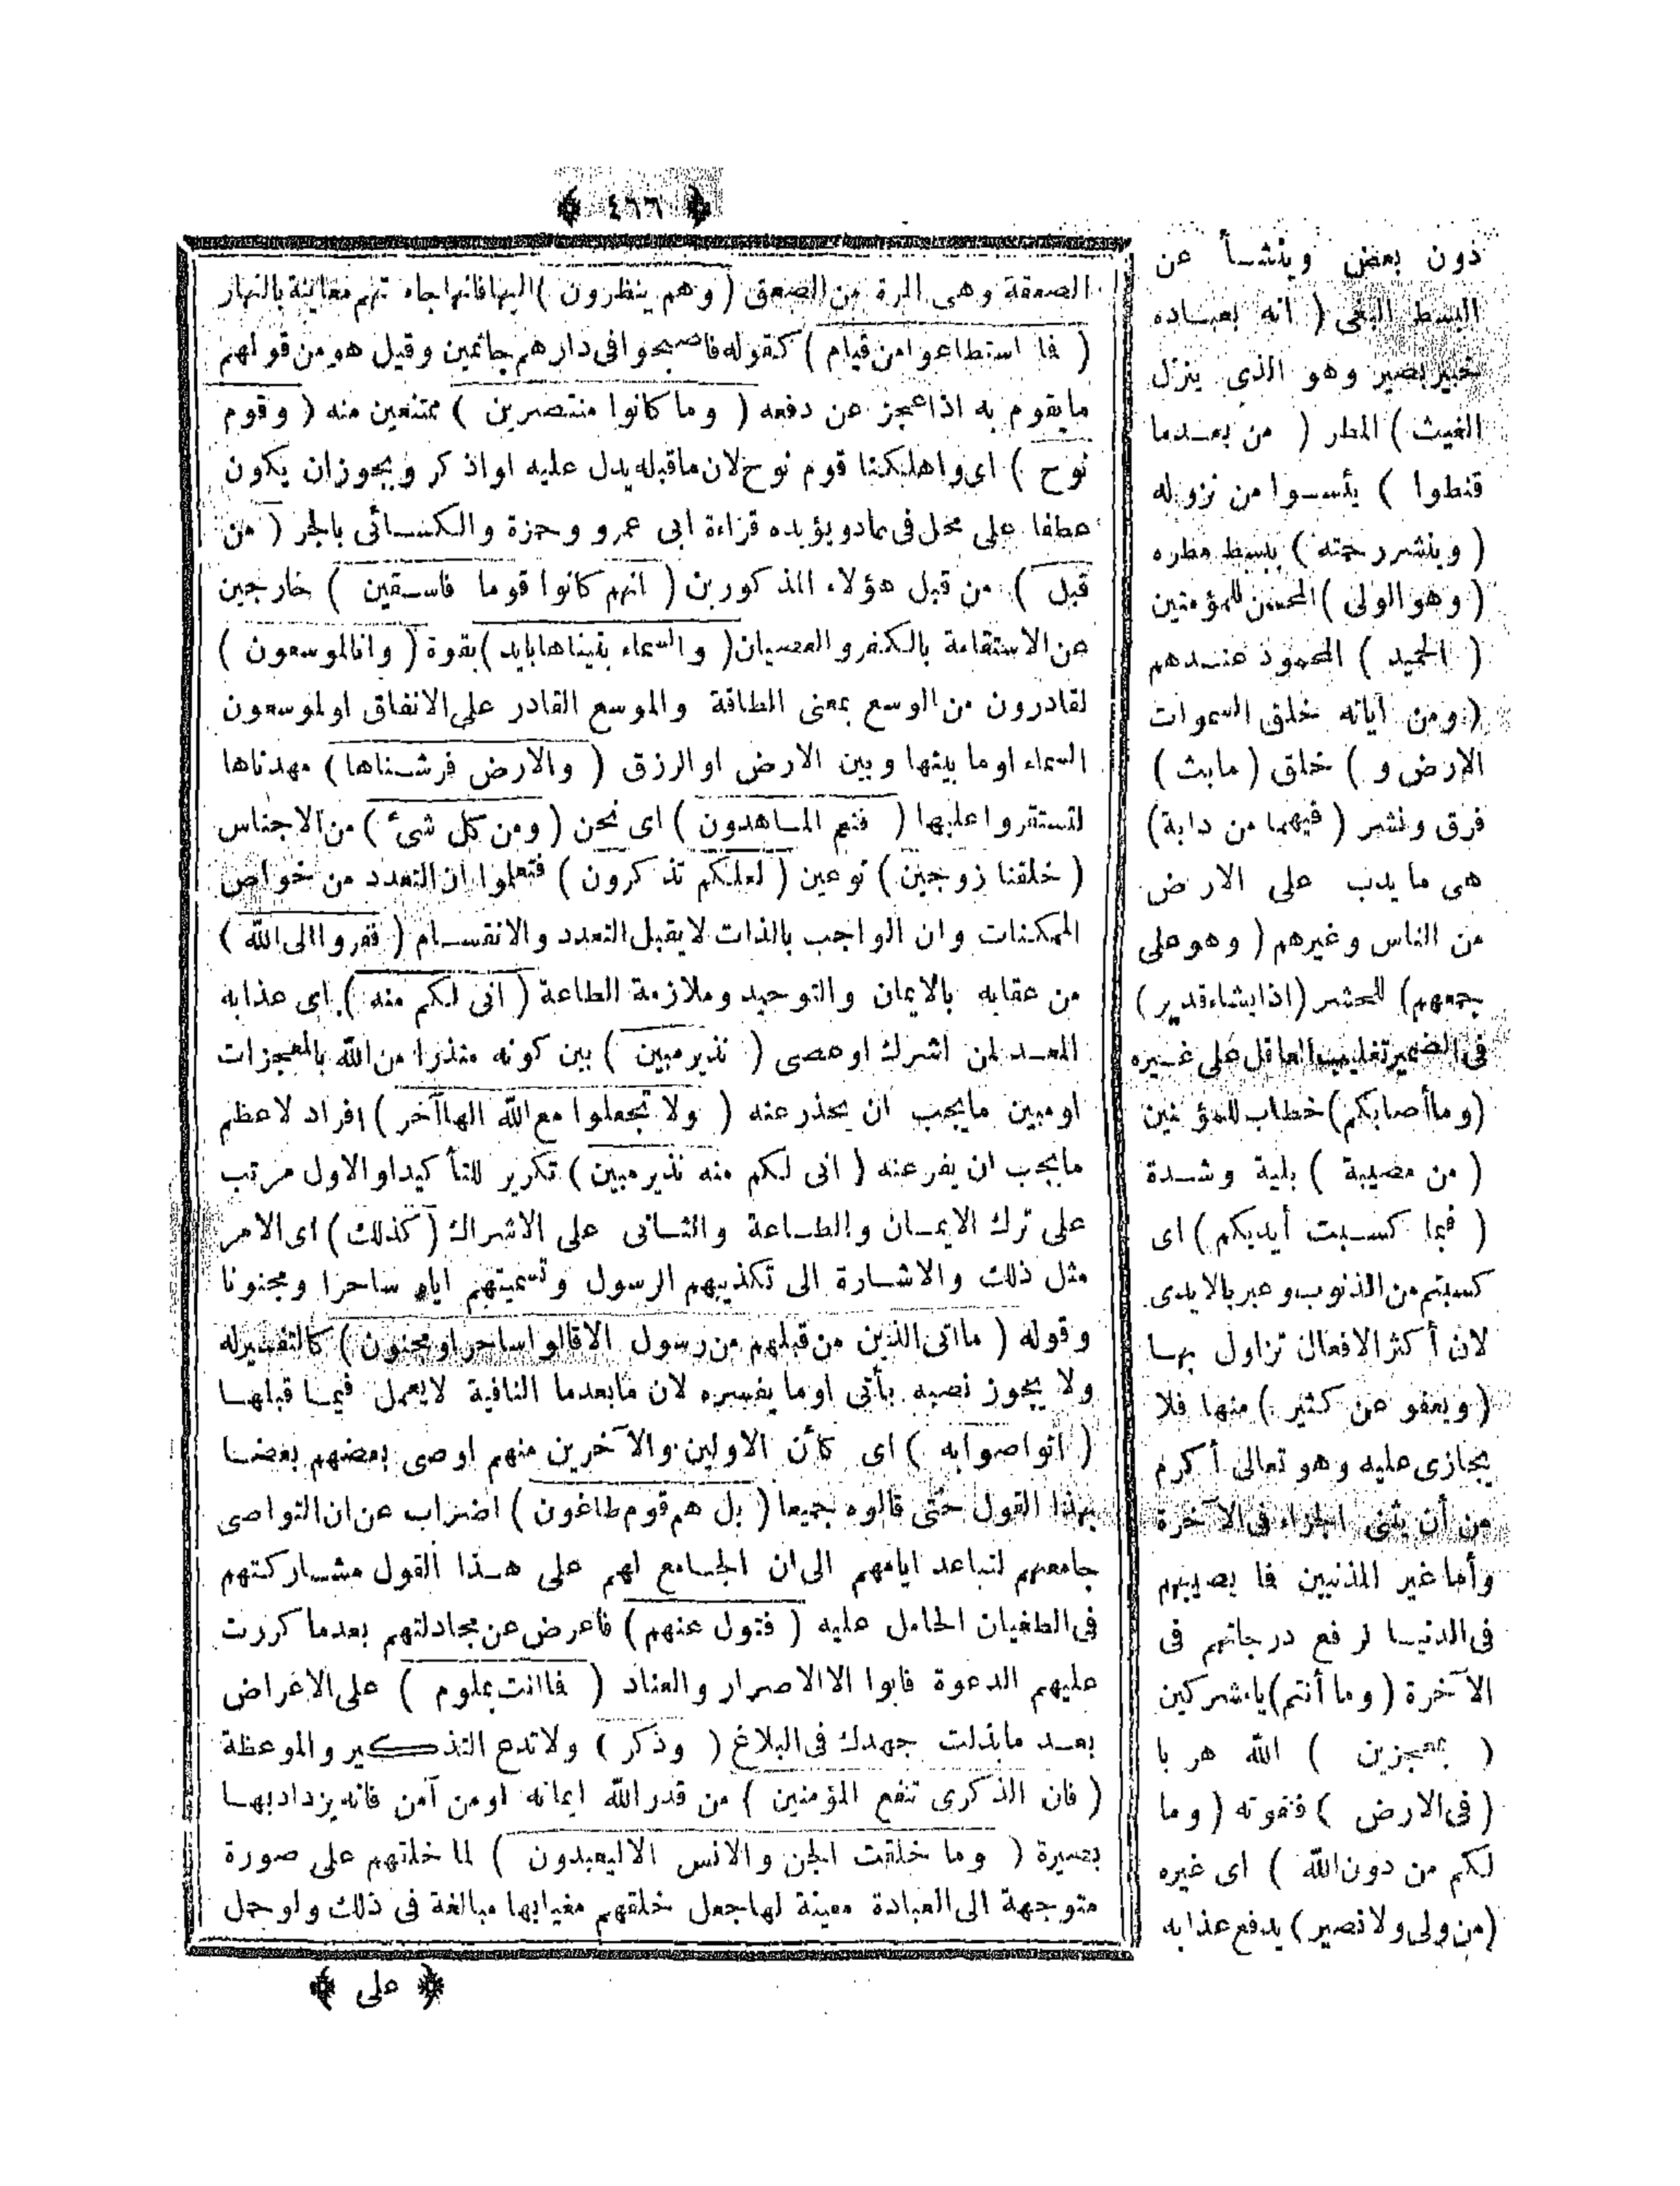 ﴿ ٤٦٦ ﴾
الصعقة وهى المرة من الصعق ( وهم ينظرون ) اليها فانها جاءتهم معاينة بالنهار
( فما استطاعوا من قيام ) كقوله فاصبحوا فى دارهم جاثمين وقيل هو من قولهم
مايقوم به اذا عجز عن دفعه ( وما كانوا منتصرين ) ممتنعين منه ( وقوم
نوح ) اى واهلكنا قوم نوح لان ماقبله يدل عليه او اذكر ويجوز ان يكون
عطفا على محل فى عاد ويؤيده قراءة ابى عمرو وحمزة والكسائى بالجر ( من
قبل ) من قبل هؤلاء المذكورين ( انهم كانوا قوما فاسقين ) خارجين
عن الاستقامة بالكفر والعصيان ( والسماء بنيناها بايد ) بقوة ( وانا لموسعون )
لقادرون من الوسع بمعنى الطاقة والموسع القادر على الانفاق او لموسعون
السماء او ما بينها وبين الارض او الرزق ( والارض فرشناها ) مهدناها
لتستقروا عليها ( فنعم الماهدون ) اى نحن ( ومن كل شىء ) من الاجناس
( خلقنا زوجين ) نوعين ( لعلكم تذكرون ) فتعلموا ان التعدد من خواص
الممكنات وان الواجب بالذات لا يقبل التعدد والانقسام ( ففروا الى الله )
من عقابه بالايمان والتوحيد وملازمة الطاعة ( انى لكم منه ) اى عذابه
المعد لمن اشرك او عصى ( نذير مبين ) بين كونه منذرا من الله بالمعجزات
او مبين مايجب ان يحذر عنه ( ولا تجعلوا مع الله الها آخر ) افراد لاعظم
مايجب ان يفر عنه ( انى لكم منه نذير مبين ) تكرير للتأكيد او الاول مرتب
على ترك الايمان والطاعة والثانى على الاشراك ( كذلك ) اى الامر
مثل ذلك والاشارة الى تكذيبهم الرسول وتسميتهم اياه ساحرا ومجنونا
وقوله ( ما اتى الذين من قبلهم من رسول الا قالوا ساحر او مجنون ) كالتفسير له
ولا يجوز نصبه بأتى او ما يفسره لان مابعدما النافية لايعمل فيما قبلها
( اتواصوا به ) اى كأن الاولين والآخرين منهم اوصى بعضهم بعضا
بهذا القول حتى قالوه جميعا ( بل هم قوم طاغون ) اضراب عن ان التواصى
جامعهم لتباعد ايامهم الى ان الجامع لهم على هذا القول مشاركتهم
فى الطغيان الحامل عليه ( فتول عنهم ) فاعرض عن مجادلتهم بعدما كررت
عليهم الدعوة فابوا الا الاصرار والعناد ( فما انت بملوم ) على الاعراض
بعد مابذلت جهدك فى البلاغ ( وذكر ) ولا تدع التذكير والموعظة
( فان الذكرى تنفع المؤمنين ) من قدر الله ايمانه او من آمن فانه يزداد بها
بصيرة ( وما خلقت الجن والانس الا ليعبدون ) لما خلقهم على صورة
متوجهة الى العبادة معينة لها جعل خلقهم مغيابها مبالغة فى ذلك ولو حمل
﴿ على ﴾
دون بعض وينشأ عن
البسط البغى ( انه بعباده
خبير بصير وهو الذى ينزل
الغيث ) المطر ( من بعدما
قنطوا ) يأسوا من نزوله
( وينشر رحمته ) يبسط مطره
( وهو الولى ) المحسن للمؤمنين
( الحميد ) المحمود عندهم
( ومن آياته خلق السموات
الارض و ) خلق ( مابث )
فرق ونشر ( فيهما من دابة )
هى مايدب على الارض
من الناس وغيرهم ( وهو على
جمعهم ) للحشر ( اذا يشاء قدير )
فى الضمير تغليب العاقل على غيره
( وما أصابكم ) خطاب للمؤمنين
( من مصيبة ) بلية وشدة
( فبما كسبت أيديكم ) اى
كسبتم من الذنوب وعبر بالايدى
لان أكثر الافعال تزاول بها
( ويعفو عن كثير ) منها فلا
يجازى عليه وهو تعالى أكرم
من أن يثنى الجزاء فى الآخرة
وأما غير المذنبين فما يصيبهم
فى الدنيا لرفع درجاتهم فى
الآخرة ( وما أنتم ) يامشركين
( بمعجزين ) الله هربا
( فى الارض ) فتفوته ( وما
لكم من دون الله ) اى غيره
( من ولى ولا نصير ) يدفع عذابه